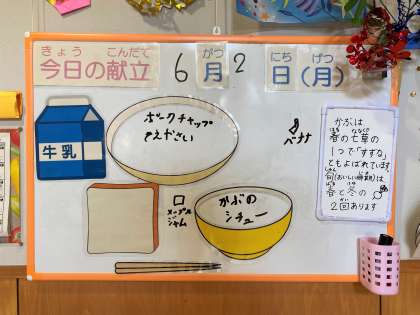 きょう こんだて
今日の献立
6
がつ
月
2
にち げつ
日(月)
牛乳
ポークチャップ
そえやさい
バナナ
メープル
ジャム
かぶの
シチュー
かぶは
はる ななくさ
春の七草の
1つで「すずな」
ともよばれています。
旬(おいしい時期)は
春と冬の
2回あります